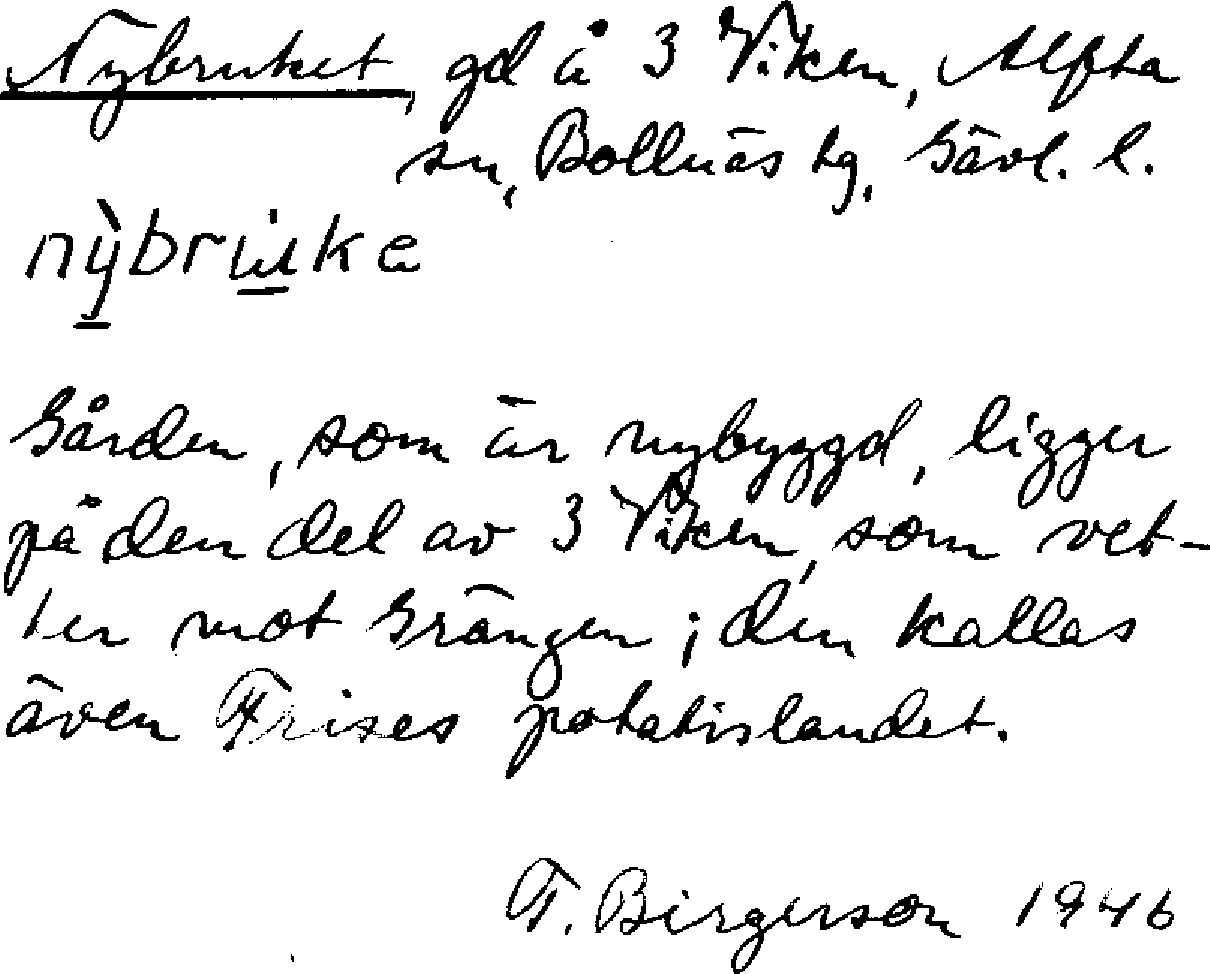 Nybruket, gd å 3 Viken, Alfta
sn, Bollnäs tg, Gävl. l.
nỳbru̇ke
Gården, som är nybyggd, ligger
på den del av 3 Viken, som vet-
ter mot Grängen; den kallas
även Frises potatislandet.
F. Birgerson 1946